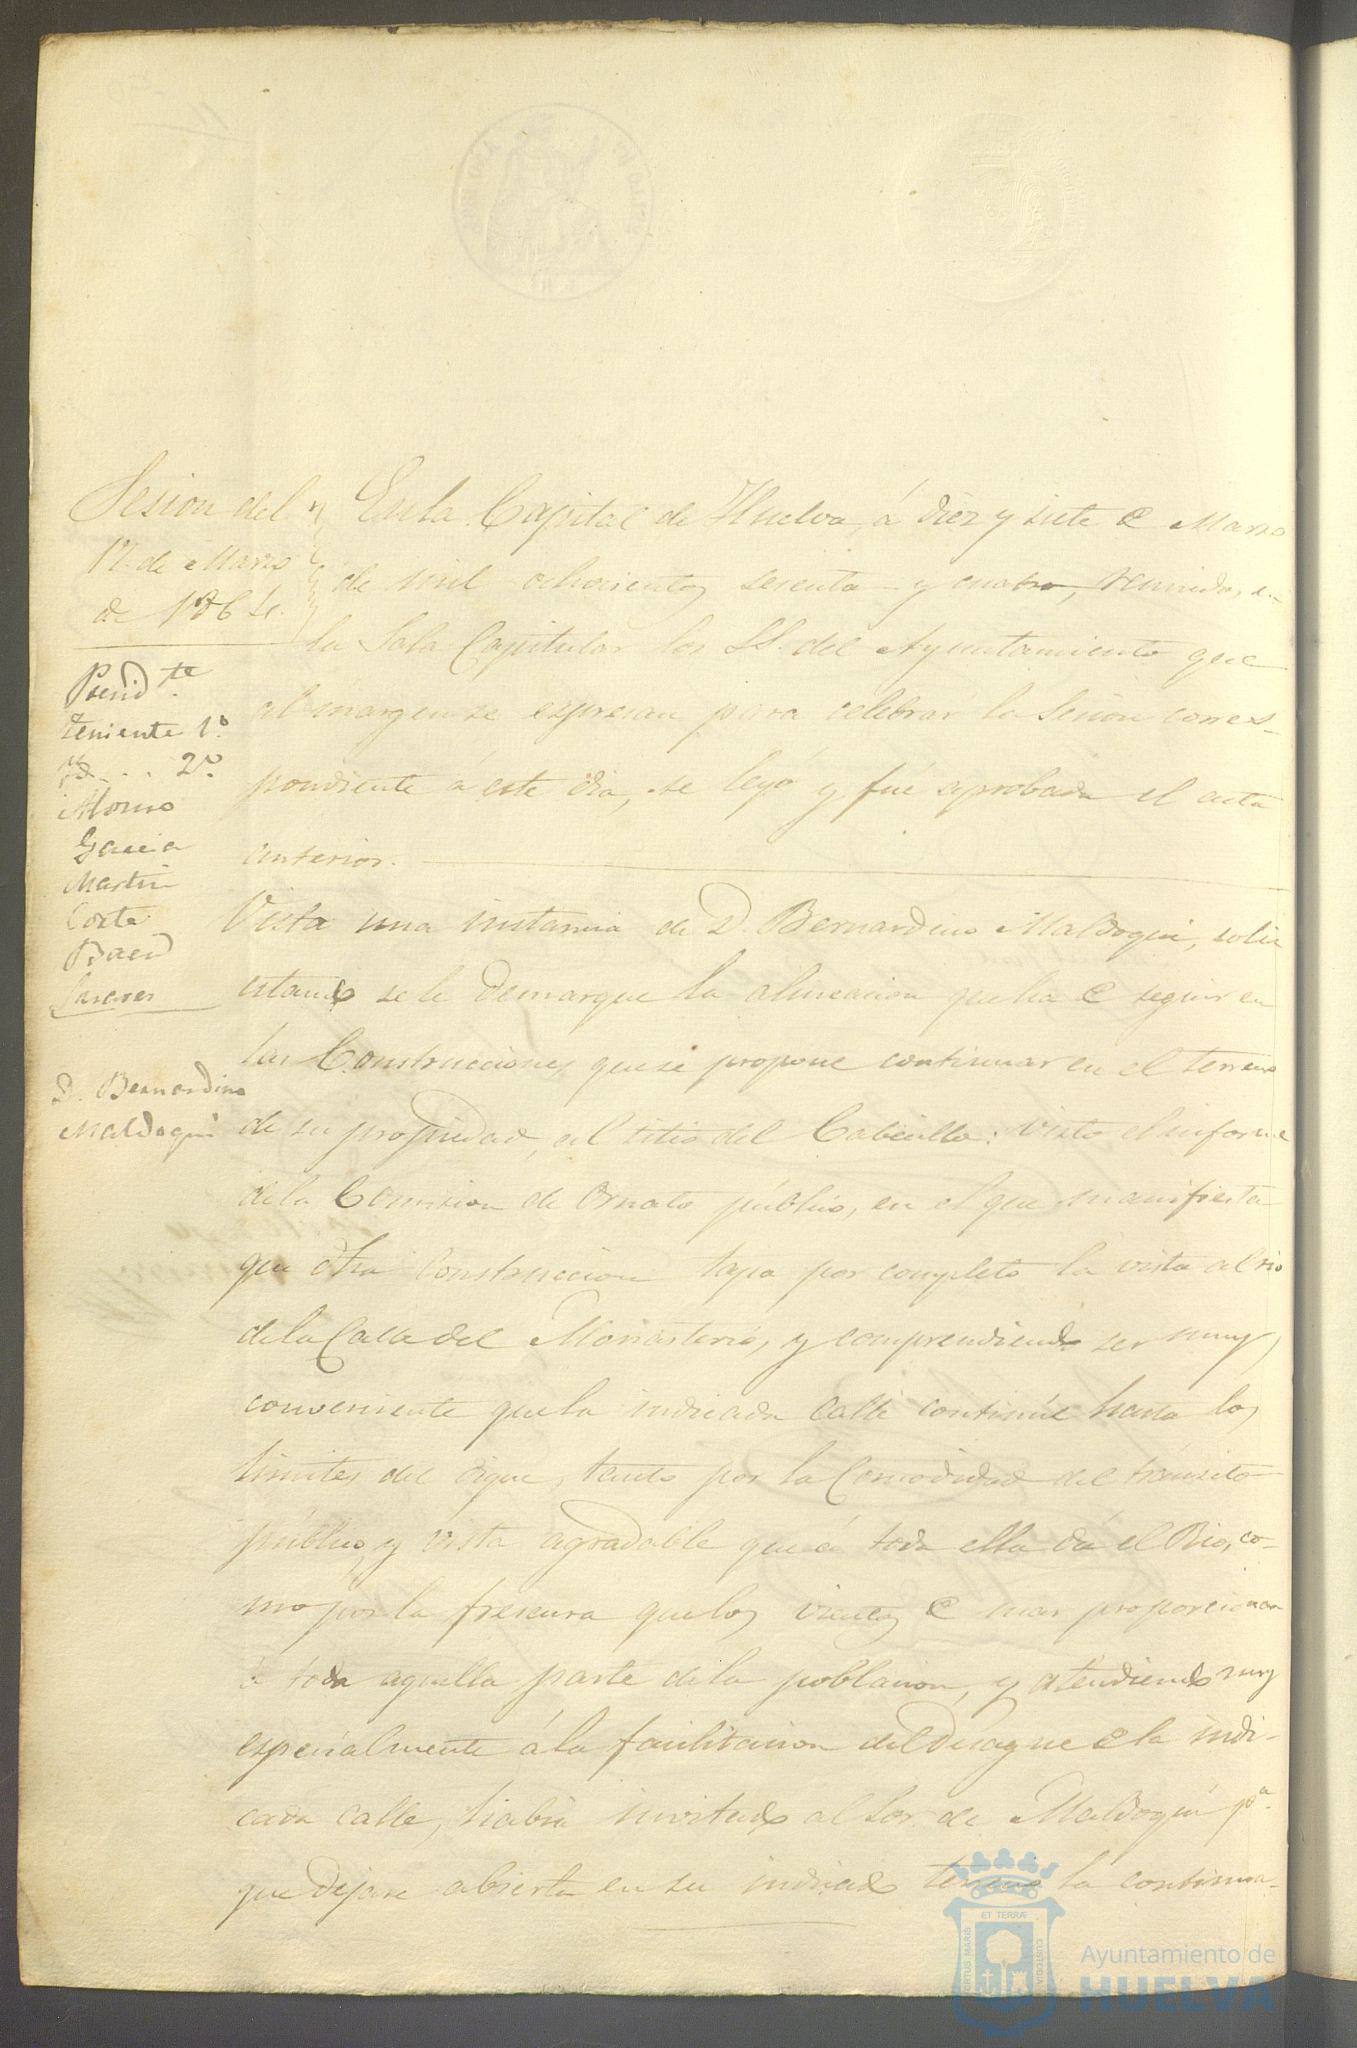 Sesion del
17 de Marzo
de 1864.
Presid.te
Teniente 1.º
Yd... 2.º
Alonso
Garcia
Martin
Corte
Baen
D. Bernardino
Maldoqui
En la Capital de Huelva, á diez y siete de Marzo
de mil ochocientos sesenta y cuatro, reunidos en
la Sala Capitular los SS. del Ayuntamiento que
al margen se espresan para celebrar la Sesion corres-
pondiente á este dia, se leyó y fué aprobada el acta
anterior.
Vista una instancia de D. Bernardino Maldoqui, solici
citando se le demarque la alineacion que ha de seguir en
las Construcciones que se propone continuar en el terreno
de su propiedad, al sitio del Cabecillo: visto el informe
de la Comision de Ornato público, en el que manifiesta
que dha Construccion tapa por completo la vista al rio
de la Calle del Monasterio, y comprendiendo ser muy
conveniente que la indicada calle continúe hasta los
limites del dique, tanto por la Comodidad del tránsito
público, y vista agradable que á toda ella dá el Rio, co-
mo por la frescura que los vientos de mar proporcionan
á toda aquella parte de la poblacion, y atendiendo muy
especialmente á la facilitacion del desague de la indi-
cada calle, habia invitado al Sor. de Maldoqui p.a
que dejase abierta en su indicado terreno la continua-
PORTUS MARIS
ET TERRÆ
CUSTODIA
Ayuntamiento de
HUELVA